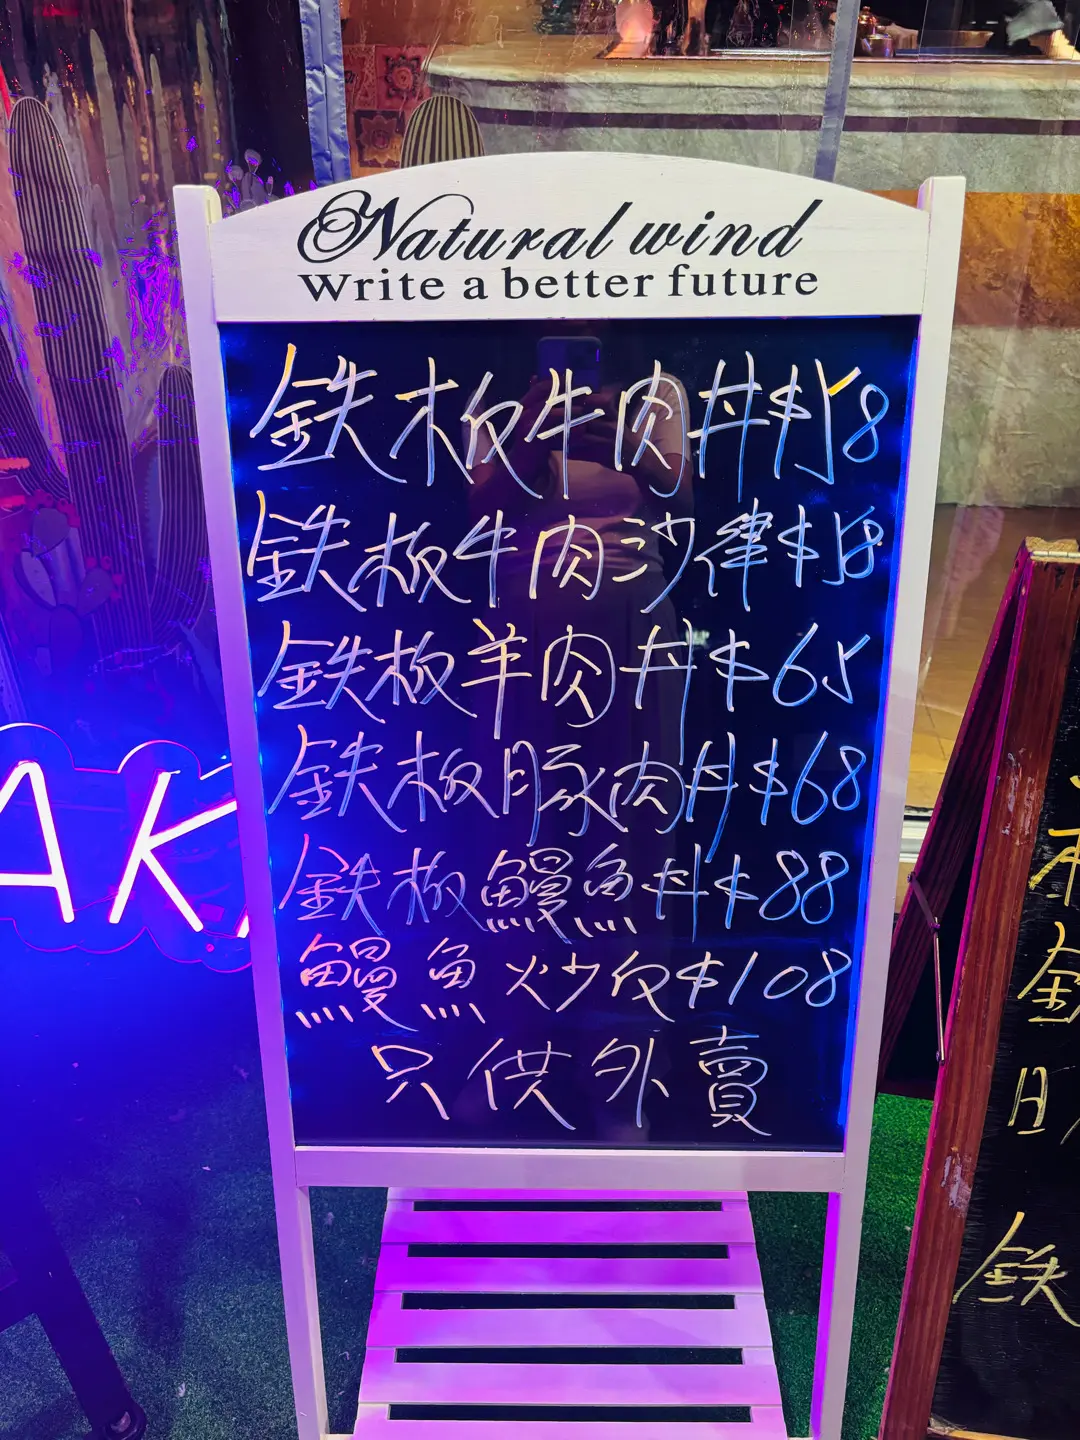 Natural wind
Write a better future
鉄板牛肉丼$58
鉄板牛肉沙律$58
鉄板羊肉丼$65
鉄板豚肉丼$68
鉄板鰻魚丼$88
鰻魚炒反$108
只供外賣
AK
金
日
鉄